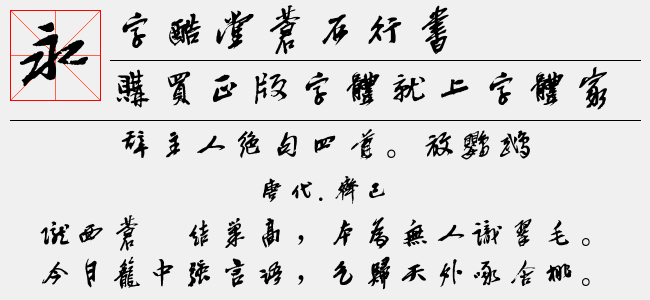 永
字酷堂蒼石行書
購買正版字體就上字體家
辭主人絕句四首。放鸚鵡
唐代.齊己
隴西蒼 結巢高，本為無人識翠毛。
今日籠中強言語，乞歸天外啄含桃。